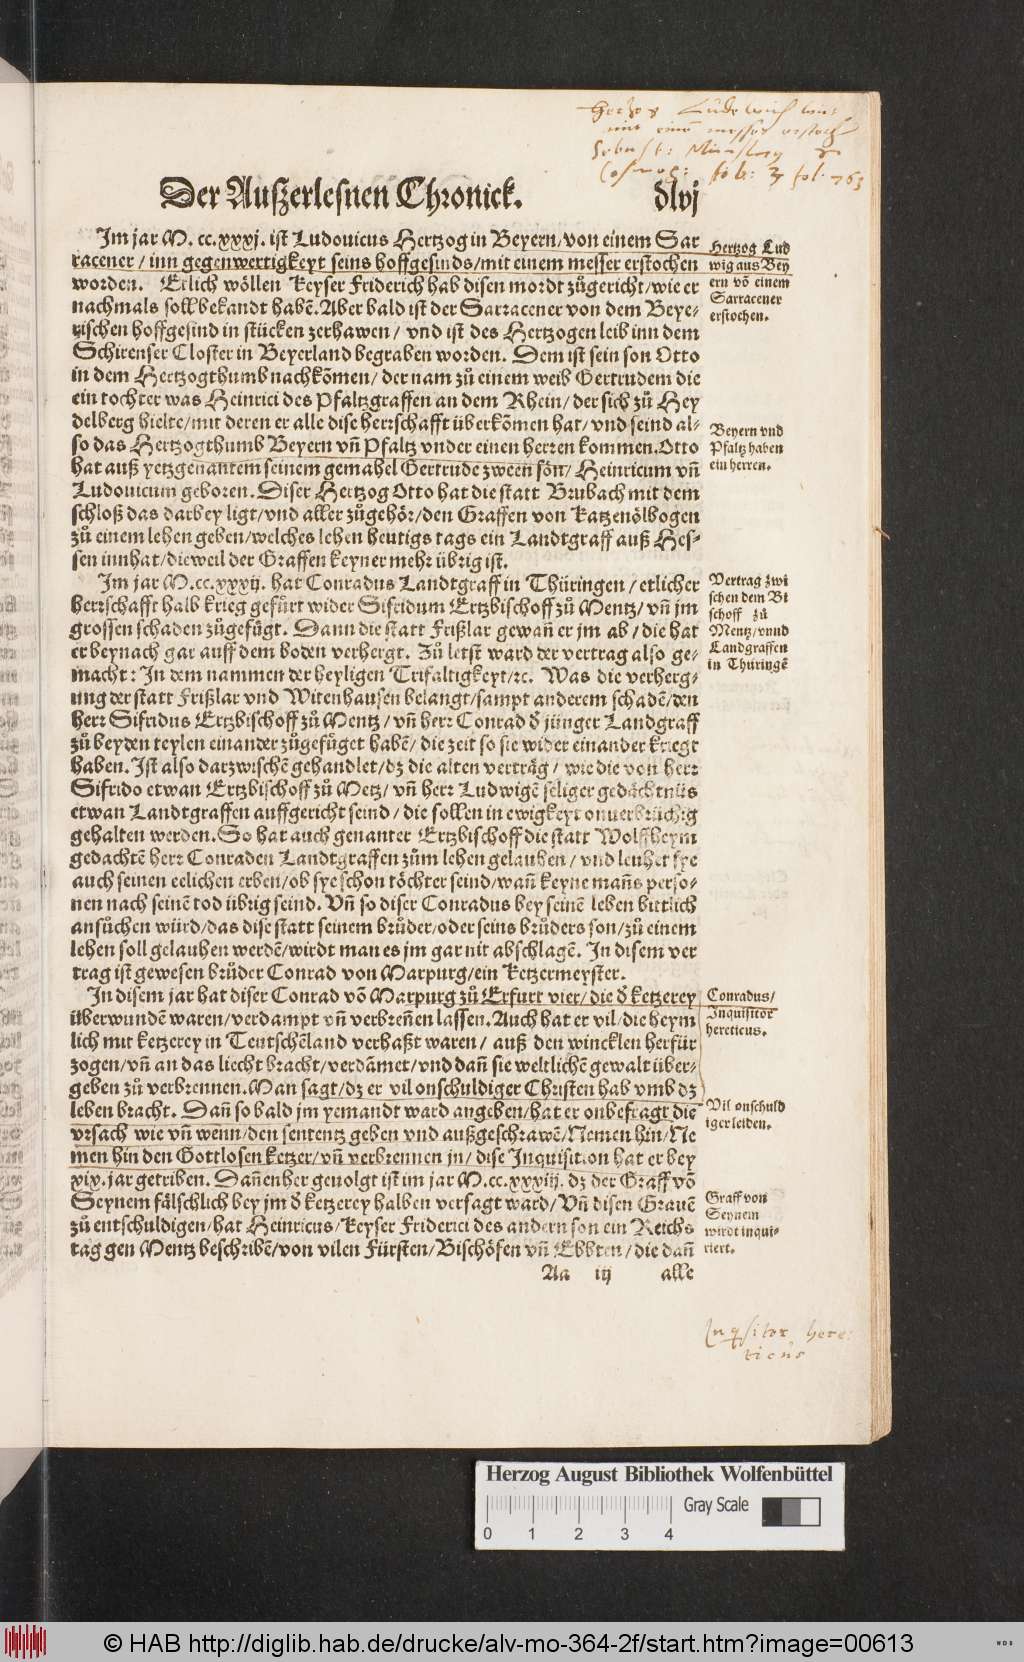 Hertzog Ludewich
mit einē messer erstoch
Sebast: Münster
Cosmog: lib: 3 fol. 763
Der Außzerlesnen Chronick. dlvj
Im jar M. cc.xxxj. ist Ludouicus Hertzog in Beyern/von einem Sar
racener/inn gegenwertigkeyt seins hoffgesinds/mit einem messer erstochen
worden. Etlich wöllen Keyser Friderich hab disen mordt zůgericht/wie er
nachmals soll bekandt habē. Aber bald ist der Sarracener von dem Beye-
rischen hoffgesind in stücken zerhawen/ vnd ist des Hertzogen leib inn dem
Schirenser Closter in Beyerland begraben worden. Dem ist sein son Otto
in dem Hertzogthumb nachkōmen/ der nam zů einem weib Gertrudem die
ein tochter was Heinrici des Pfaltzgraffen an dem Rhein/ der sich zů Hey
delberg hielte/mit deren er alle dise herrschafft überkōmen hat/vnd seind al-
so das Hertzogthumb Beyern vñ Pfaltz vnder einen herren kommen. Otto
hat auß yetzgenantem seinem gemahel Gertrude zween sön/ Heinricum vñ
Ludouicum geboren. Diser Hertzog Otto hat die statt Brubach mit dem
schloß das darbey ligt/vnd aller zůgehör/den Graffen von Katzenölbogen
zů einem lehen geben/welches lehen heutigs tags ein Landtgraff auß Hes-
sen innhat/dieweil der Graffen keyner mehr übrig ist.
Im jar M.cc.xxxij. hat Conradus Landtgraff in Thüringen/ etlicher
herrschafft halb krieg gefürt wider Sifridum Ertzbischoff zů Mentz/ vñ jm
grossen schaden zůgefügt. Dann die statt Frißlar gewañ er jm ab/ die hat
er beynach gar auff dem boden verhergt. Zů letst ward der vertrag also ge-
macht: In dem nammen der heyligen Trifaltigkeyt/ꝛc. Was die verherg-
ung der statt Frißlar vnd Witenhausen belangt/sampt anderem schadē/den
herr Sifridus Ertzbischoff zů Mentz/ vñ herr Conrad ď jünger Landgraff
zů beyden teylen einander zůgefüget habē/ die zeit so sie wider einander kriegt
haben. Ist also darzwischē gehandlet/dz die alten verträg/ wie die von herr
Sifrido etwan Ertzbischoff zů Metz/ vñ herr Ludwigē seliger gedächtnüs
etwan Landtgraffen auffgericht seind/ die sollen in ewigkeyt onuerbrüchig
gehalten werden. So hat auch genanter Ertzbischoff die statt Wolffheym
gedachtē herr Conraden Landtgraffen zům lehen gelauhen/ vnd leuhet sye
auch seinen eelichen erben/ob sye schon töchter seind/wañ keyne mañs perso-
nen nach seinē tod übrig seind. Vñ so diser Conradus bey seinē leben bittlich
ansůchen würd/das dise statt seinem brůder/oder seins brůders son/zů einem
lehen soll gelauhen werdē/wirdt man es jm gar nit abschlagē. In disem ver
trag ist gewesen brůder Conrad von Marpurg/ein Ketzermeyster.
In disem jar hat diser Conrad vō Marpurg zů Erfurt vier/ die ď ketzerey
überwundē waren/verdampt vñ verbreñen lassen. Auch hat er vil/die heym
lich mit ketzerey in Teutschēland verhaßt waren/ auß den wincklen herfür
zogen/vñ an das liecht bracht/verdāmet/vnd dañ sie weltlichē gewalt über-
geben zů verbrennen. Man sagt/dz er vil onschuldiger Christen hab vmb dz
leben bracht. Dañ so bald jm yemandt ward angeben/hat er onbefragt die
vrsach wie vñ wenn/den sententz geben vnd außgeschrawē/Nemen hin/Ne
men hin den Gottlosen ketzer/vñ verbrennen jn/ dise Inquisition hat er bey
xix. jar getriben. Dañenher geuolgt ist im jar M.cc.xxxiij. dz der Graff vō
Seynem fälschlich bey jm ď ketzerey halben versagt ward/ Vñ disen Grauē
zů entschuldigen/hat Heinricus/Keyser Friderici des andern son ein Reichs
tag gen Mentz beschribē/von vilen Fürsten/Bischöfen vñ Ebbten/die dañ
Aa iij alle
Hertzog Lud
wig aus Bey
ern vō einem
Sarracener
erstochen.
Beyern vnd
Pfaltz haben
ein herren.
Vertrag zwi
schen dem Bi
schoff zů
Mentz/vnnd
Landgraffen
in Thüringē
Conradus/
Inquisitor
hereticus.
Vil onschuld
iger leiden.
Graff von
Seynem
wirdt inqui-
riert.
Inqsitor here:
ticus
Herzog August Bibliothek Wolfenbüttel
Gray Scale
0 1 2 3 4
© HAB http://diglib.hab.de/drucke/alv-mo-364-2f/start.htm?image=00613